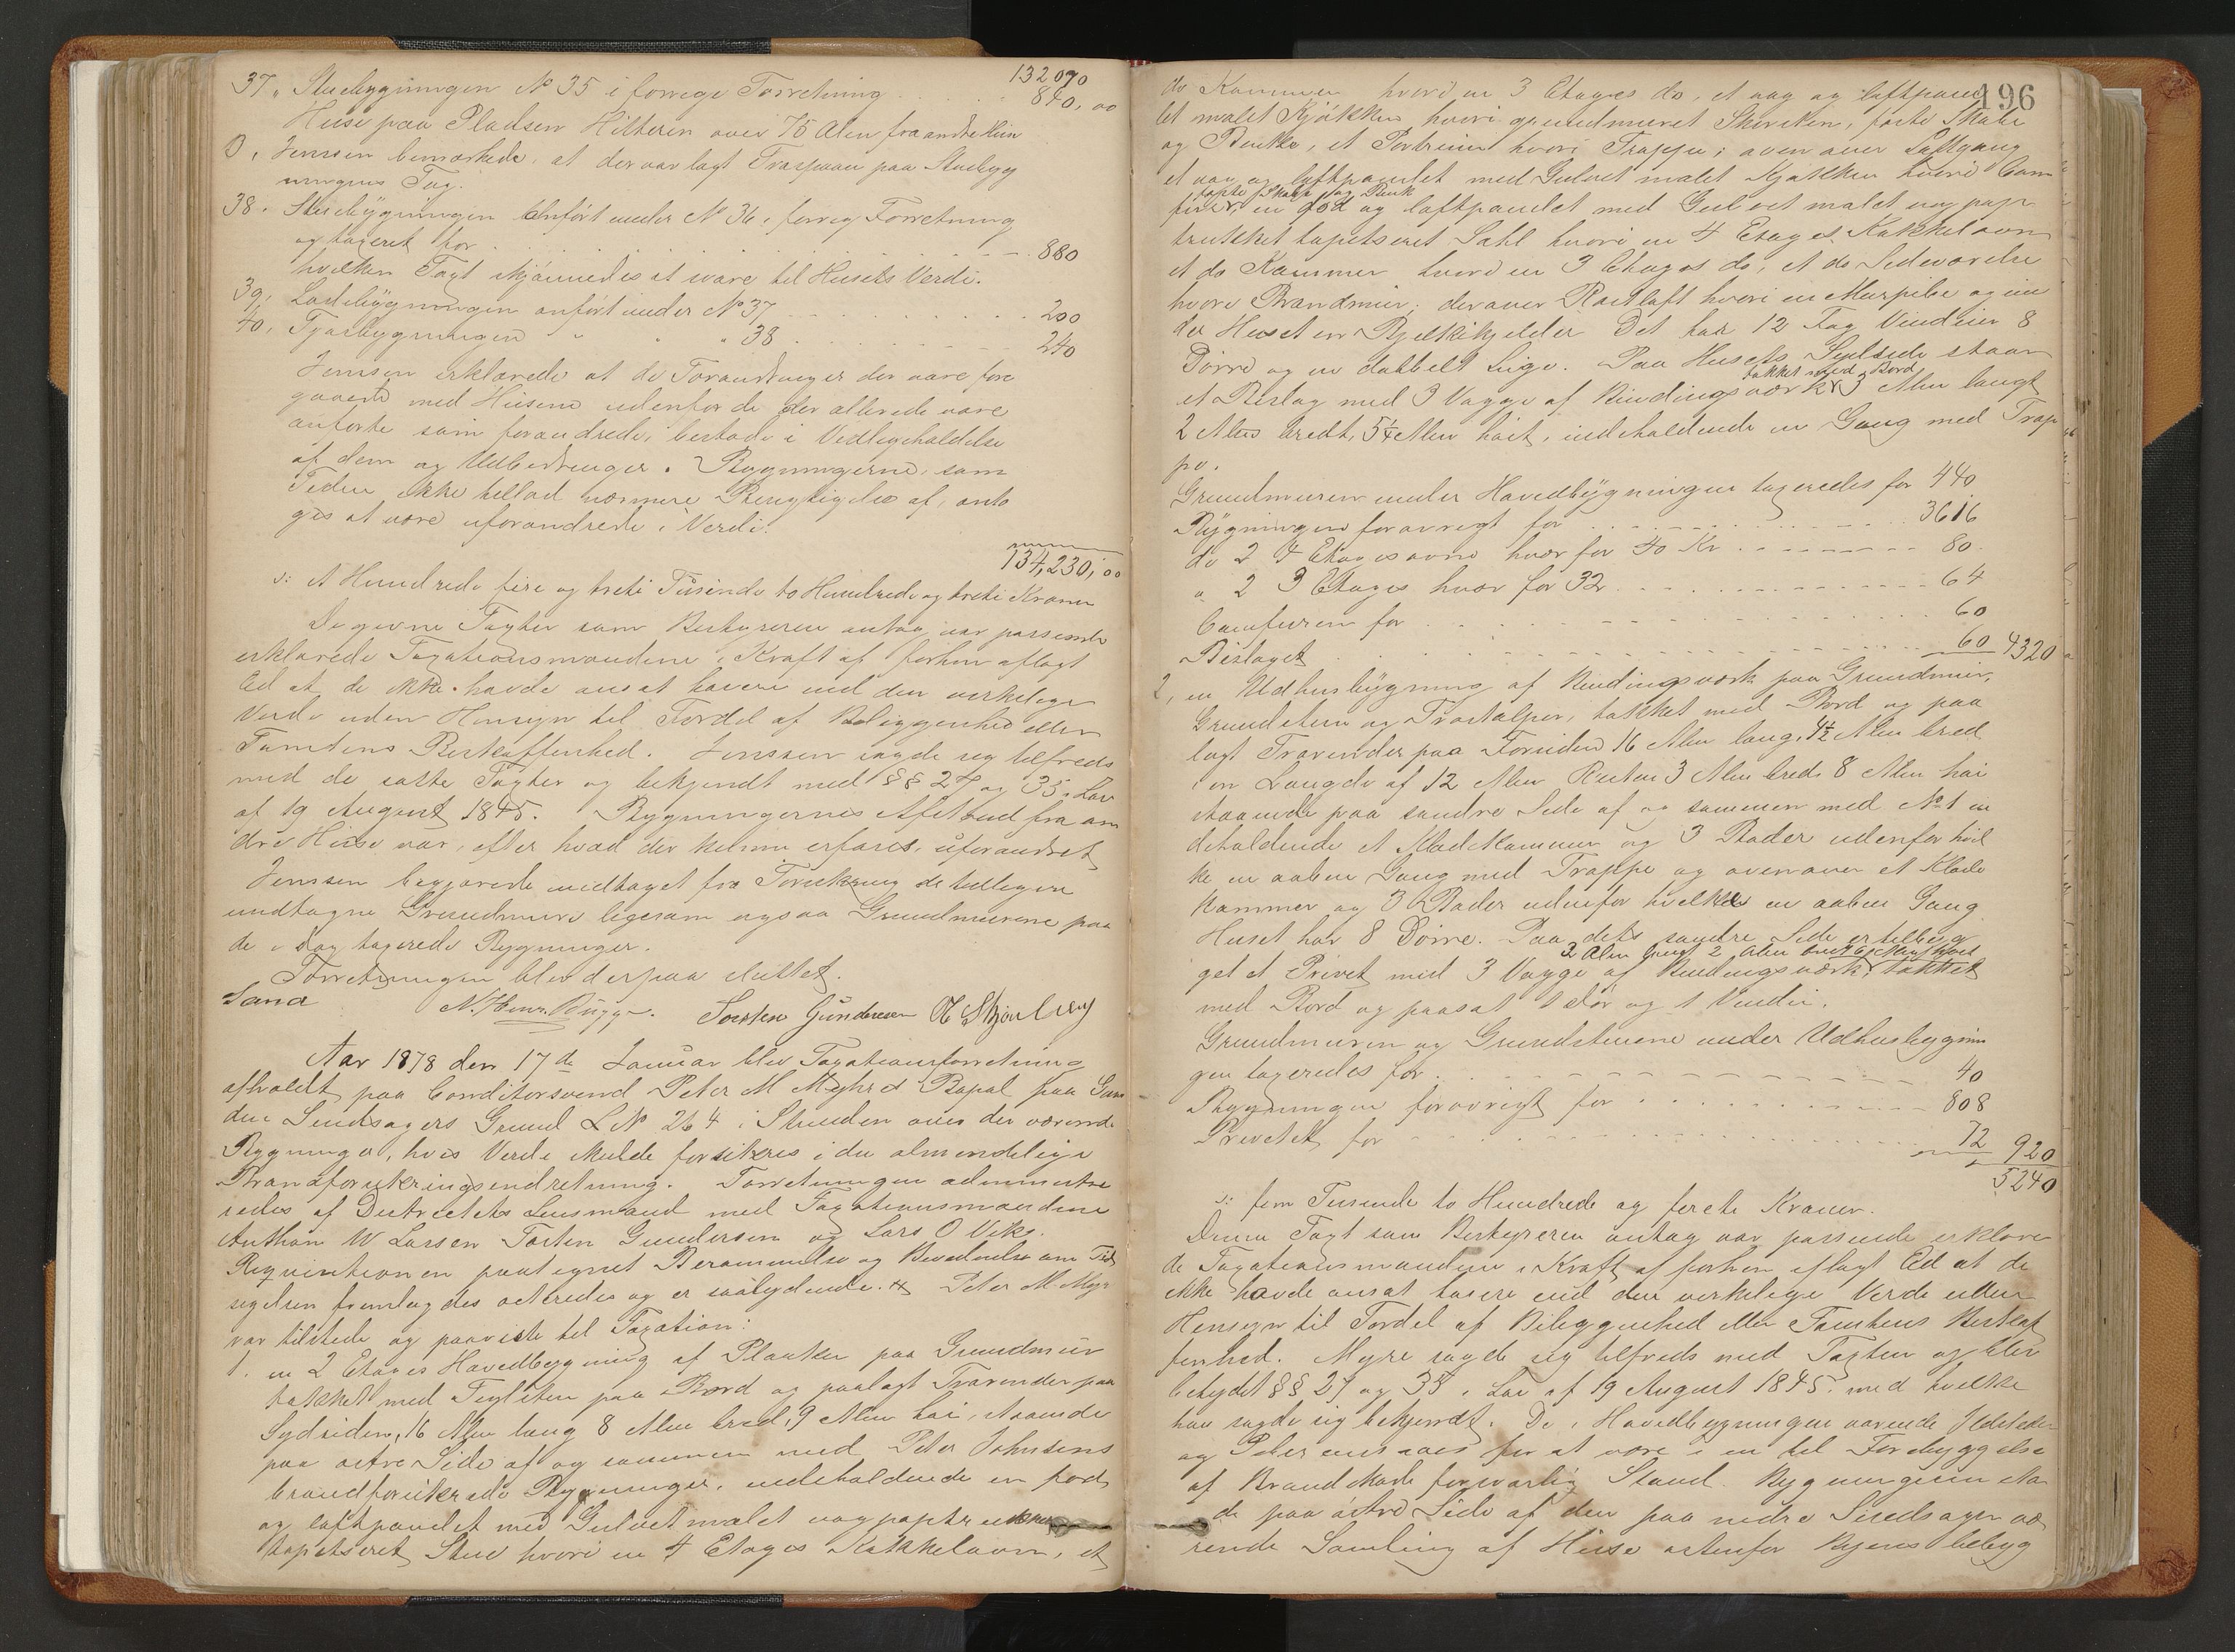 132070
37, Stuebygningen No 35 i forrige Forretning 840,00
Huse paa Pladsen Hilteren over 75 Alen fra andre Huse
Jenssen bemærkede, at der var lagt Træspaan paa Stuebyg
ningens Tag.
38. Stuebygningen anført under No 36 i forrig Forretning
og taxeret for 880
hvilken Taxt skjønnedes at svare til Husets Verdi.
39, Ladebygningen anført under No 37 200
40, Fjøsbygningen " " " 38 240
Jenssen erklærede at de Forandringer der vare fore
gaaede med Husene udenfor de der allerede vare
anførte som forandrede, bestode i Vedligeholdelse
af dem og Udbedringer. Bygningerne, som
Tiden ikke tillod nærmere Besigtigelse af, anto
ges at være uforandrede i Verdi.
134,230,00
s: et Hundrede fire og treti Tusinde to Hundrede og treti Kroner
De givne Taxter som Bestyreren antog var passende
erklærede Taxationsmændene i Kraft af forhen aflagt
Ed at de ikke havde ansat høiere end den virkelige
Verdi uden Hensyn til Fordel af Beliggenhed eller
Tomtens Beskaffenhed. Jenssen sagde sig tilfreds
med de satte Taxter og bekjendt med §§ 27 og 35 i Lov
af 19 August 1845. Bygningernes Afstand fra an
dre Huse var, efter hvad der kunne erfares, uforandret
Jenssen begjærede undtaget fra Forsikring de tidligere
undtagne Grundmure ligesom ogsaa Grundmurene paa
de i Dag taxerede Bygninger.
Forretningen blev derpaa sluttet.
Sand N. Henr. Bugge. Torsten Gundersen
Aar 1878 den 17de Januar blev Taxationsforretning
afholdt paa Conditorsvend Peter M Myhre paa Gun
der Sindsagers Grund L No 264 i Stranden over der værende
Bygninger, hvis Verdi skulde forsikres i den almindelige
Brandforsikringsindretning. Forretningen administre
redes af Districtets Lensmand med Taxationsmændene
Anthon W Larsen Torsten Gundersen og Lars O Vik.
Requisitionen paategnet Berammelse og Bevidnelse om Til
sigelsen fremlagdes acteredes og er saalydende. Peter M Myr
var tilstede og paaviste til Taxation:
1. en 2 Etages Hovedbygning af Planker paa Grundmur
takket med Teglsten paa Bord og paalagt Træverder paa
Sydsiden, 16 Alen lang 8 Alen bred, 9 Alen høi, staaende
paa østre Side af og sammen med Peter Johnsens
brandforsikrede Bygninger, indeholdende en fod
og loftpanelet med Gulvet malet vægpaptrukken
tapetseret Stue hvori en 4 Etages Kakkelovn, et
196
do Kammer hvori en 3 Etages do, et væg og loftpane
let malet Kjøkken hvori grundmuret Skorsten, faste Skabe
og Bænke, et Fortrin hvori Trappe; oven over Loftgang
et væg og loftpanelet med Gulvet malet Kjøkken hvori Com
faste Skabe og Bænk
fur, en fod og loftpanelet med Gulvet malet væg pap
trukket tapetseret Sahl hvori en 4 Etages Kakkelovn
et do Kammer hvori en 3 Etages do, et do Sideværelse
hvori Brandmur; derover Røstloft hvori en Murpibe og un
der Huset en Bjelkekjelder. Det har 12 Fag Vinduer 8
Dørre og en dobbelt Luge. Paa Husets Sydside staar
takket med Bord
et Beslag med 3 Vægge af Bindingsværk 3 Alen langt
2 Alen bredt, 5¼ Alen høit, indeholdende en Gang med Trap
pe.
Grundmuren under Hovedbygningen taxeredes for 440
Bygningen forøvrigt for 3616
do 2 4 Etagesovne hver for 40 Kr 80
" 2 3 Etages hver for 32 64
Comfuren for 60
Bislaget 60 4320
2, en Udhusbygning af Bindingsværk paa Grundmur,
Grundstene og Træstolper, takket med Bord og paa
lagt Træverder paa Forsiden 16 Alen lang, 4½ Alen bred
i en Længde af 12 Alen Resten 3 Alen bred 8 Alen høi
staaende paa søndre Side af og sammen med No 1 in
deholdende et Klædekammer og 3 Boder udenfor hvil
ke en aaben Gang med Trappe og ovenover et Klæde
kammer og 3 Boder udenfor hvilke en aaben Gang
Huset har 8 Dørre. Paa dets søndre Side er tilbyg
get et Privet med 3 Vægge af Bindingsværk, takket
med Bord og paasat 1 dør og 1 Vindu.
Grundmuren og Grundstenene under Udhusbygnin
gen taxeredes for 40
Bygningen forøvrigt for 808
Privetet for 72 920
5240
s: fem Tusinde to Hundrede og førti Kroner.
Denne Taxt som Bestyreren antog var passende erklære
de Taxationsmændene i Kraft af forhen aflagt Ed at de
ikke havde ansat høiere end den virkelige Verdi uden
Hensyn til Fordel af Beliggenhed eller Tomtens Beskaf
fenhed. Myre sagde sig tilfreds med Taxten og blev
betydet §§ 27 og 35 i Lov af 19 August 1845 med hvilke
han sagde sig bekjendt. De i Hovedbygningen værende Ildsteder
og Piber ansaaes for at være i en til Forebyggelse
af Brandskade forsvarlig Stand. Bygningerne sto
de paa østre Side af den paa nedre Sindsager væ
rende Samling af Huse østenfor Byens bebyg